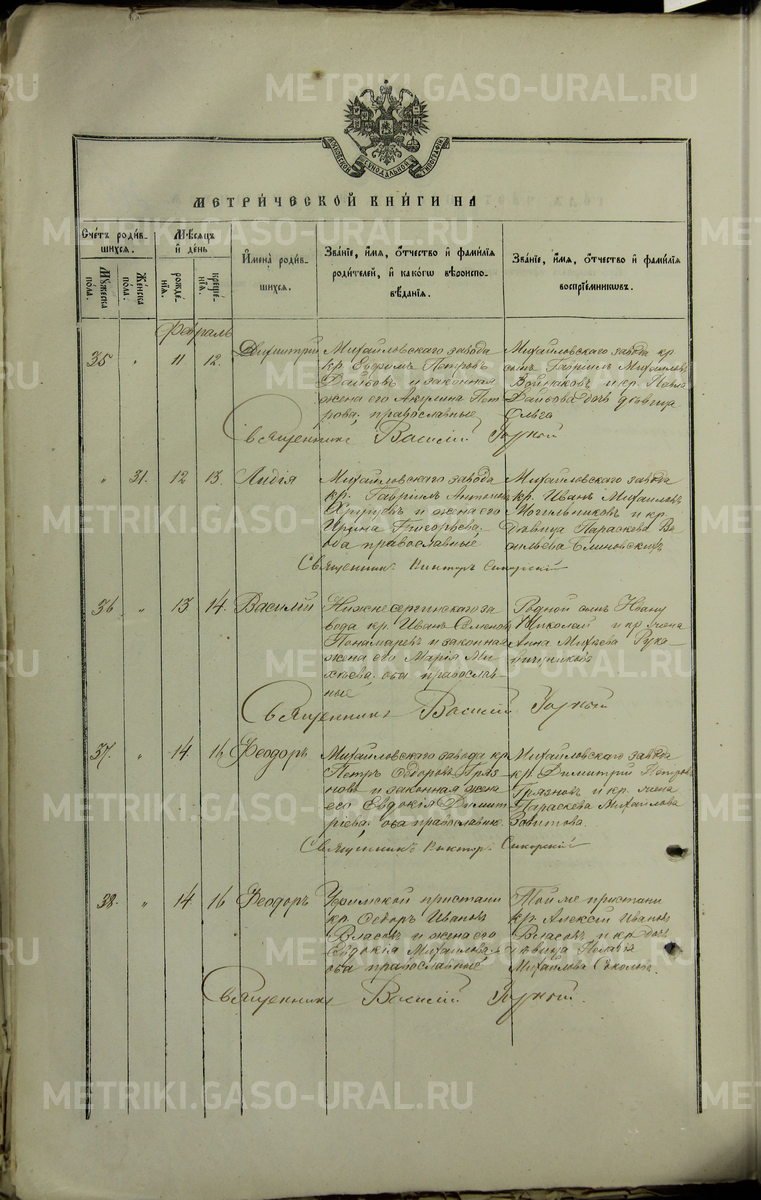 METRIKI.GASO-URAL.RU
МОСКОВСКОЙ СѴНОДАЛЬНОЙ ТИПОГРАФІИ
МЕТРИ́ЧЕСКОЙ КНИ́ГИ НА
Счéтъ роди́в-
шихся.
Мꙋжеска пóла.
Жéнска пóла.
Мѣсяцъ и дéнь
рождé-
нїя.
крещé-
нїя.
Имена̀ роди́в-
шихся.
Звáнїе, и́мя, óтчество и фами́лїя
роди́телей, и какóгѡ вѣроиспо-
вѣ́данїя.
Звáнїе, и́мя, óтчество и фами́лїя
воспрїéмникѡвъ.
Февраль
35 " 11 12. Димитрій
Михайловскаго завода
кр. Евфимъ Петровъ
и законная
жена его Акулина Пет
рова; православные
Михайловскаго завода кр
сынъ Гавріилъ Михайловъ
и кр.
дочь дѣвица
Ольга
Священникъ Василій
" 31. 12 13. Лидія
Михайловскаго завода
кр. Гавріилъ Антоновъ
и жена его
Ирина Григорьева,
оба православные
Михайловскаго завода
кр. Иванъ Михайловъ
и кр.
дѣвица Параскева Ва
сильева
Священникъ Викторъ Сикорскій
36 " 13 14. Василій
Нижне сергинскаго за
вода кр. Иванъ Семеновъ
Пономаревъ и законная
жена его Марія Ми
хѣева, оба православ-
ные
Родной сынъ Ивану
Николай и кр. жена
Анна Михѣева Рука
вишникова
Священникъ Василій
37. " 14 16 Феодоръ
Михайловскаго завода кр
Петръ Ѳедоровъ Гряз
новъ и законная жена
его Евдокія Димит
ріева, оба православные
Михайловскаго завода
кр. Димитрій Петровъ
Грязновъ и кр. жена
Параскева Михайлова
Священникъ Викторъ Сикорскій
38. " 14 16 Феодоръ
Уфимской пристани
кр. Ѳедоръ Ивановъ
Власовъ и жена его
Евдокія Михайлова,
оба православные
Той же пристани
кр. Алексій Ивановъ
Власовъ и кр. дочь
дѣвица
Михайлова Соколова.
Священникъ Василій